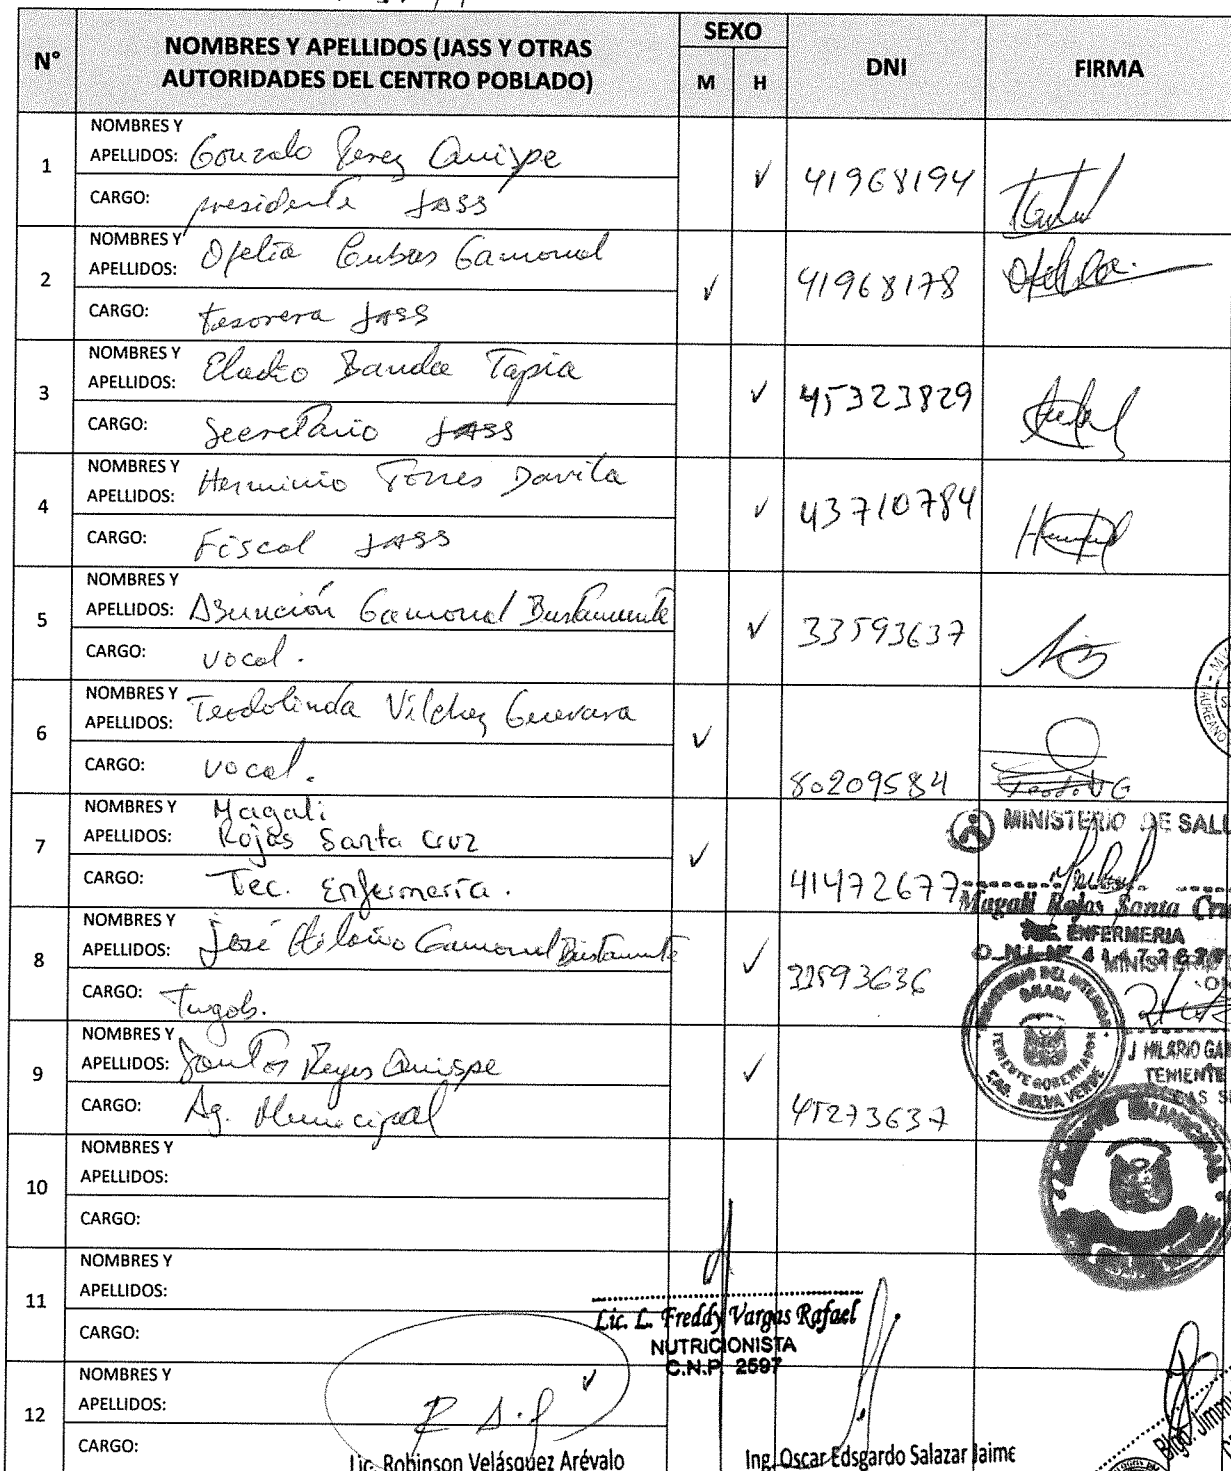 N°
NOMBRES Y APELLIDOS (JASS Y OTRAS
AUTORIDADES DEL CENTRO POBLADO)
SEXO
M H
DNI
FIRMA
1
NOMBRES Y
APELLIDOS: Gonzalo Perez Quispe
CARGO: presidente JASS
41968194
2
NOMBRES Y
APELLIDOS: Ofelia Cubas Gamonal
CARGO: tesorera JASS
41968178
3
NOMBRES Y
APELLIDOS: Eladio Banda Tapia
CARGO: Secretario JASS
45323829
4
NOMBRES Y
APELLIDOS: Herminio Torres Davila
CARGO: Fiscal JASS
43710784
5
NOMBRES Y
APELLIDOS: Asunción Gamonal Bustamente
CARGO: vocal.
33593637
6
NOMBRES Y
APELLIDOS: Teodolinda Vilchez Guevara
CARGO: vocal.
80209584
7
NOMBRES Y Magali
APELLIDOS: Rojas Santa Cruz
CARGO: Tec. Enfermería.
41472677
MINISTERIO DE SALU
Magali Rojas Santa Cru
ENFERMERIA
8
NOMBRES Y
APELLIDOS: José Hilario Gamonal Bustamante
CARGO:
33593636
MINISTERIO DEL INTERIOR
TENIENTE GOBERNADOR
CAS. SELVA VERDE
J HILARIO GAM
TENIENTE
9
NOMBRES Y
APELLIDOS: Santos Reyes Quispe
CARGO: Ag. Municipal
45273637
10
NOMBRES Y
APELLIDOS:
CARGO:
11
NOMBRES Y
APELLIDOS:
CARGO:
Lic. L. Freddy Vargas Rafael
NUTRICIONISTA
C.N.P. 2597
12
NOMBRES Y
APELLIDOS:
CARGO:
Lic. Robinson Velásquez Arévalo
Ing. Oscar Edsgardo Salazar Jaime